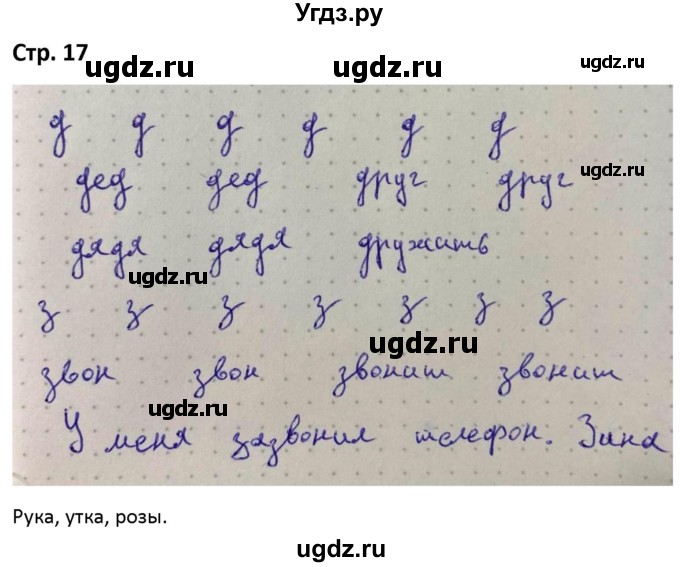 Угдз.ру
Стр. 17
ugdz.ru ugdz.ru ugdz.ru
д д д д д д
дед дед друг друг
ugdz.ru
дядя дядя дружить
ugdz.ru
з з з з з з з
ugdz.ru
звон звон звонит звонит
ugdz.ru
У меня зазвонил телефон. Зина
Рука, утка, розы.
ugdz.ru